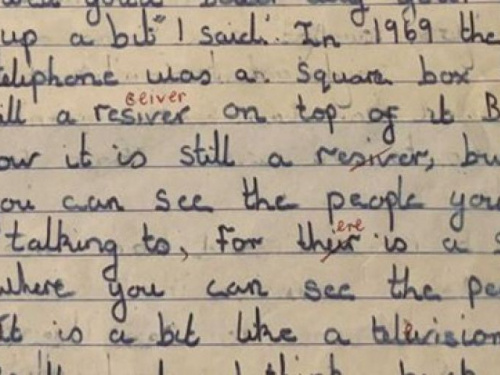 up a bit" I said. In 1969 the
telephone was a square box
ill a resiver on top of it B
seiver
ow it is still a resiver, bu
ou can see the people you
talking to, for their is a s
ere
where you can see the pe
It is a bit like a television